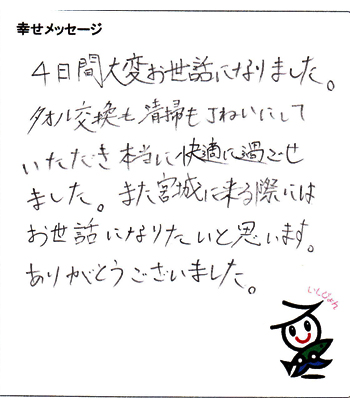 幸せメッセージ
4日間大変お世話になりました。
タオル交換も清掃もていねいにして
いただき本当に快適に過ごせ
ました。また宮城に来る際には
お世話になりたいと思います。
ありがとうございました。
いしぴょん